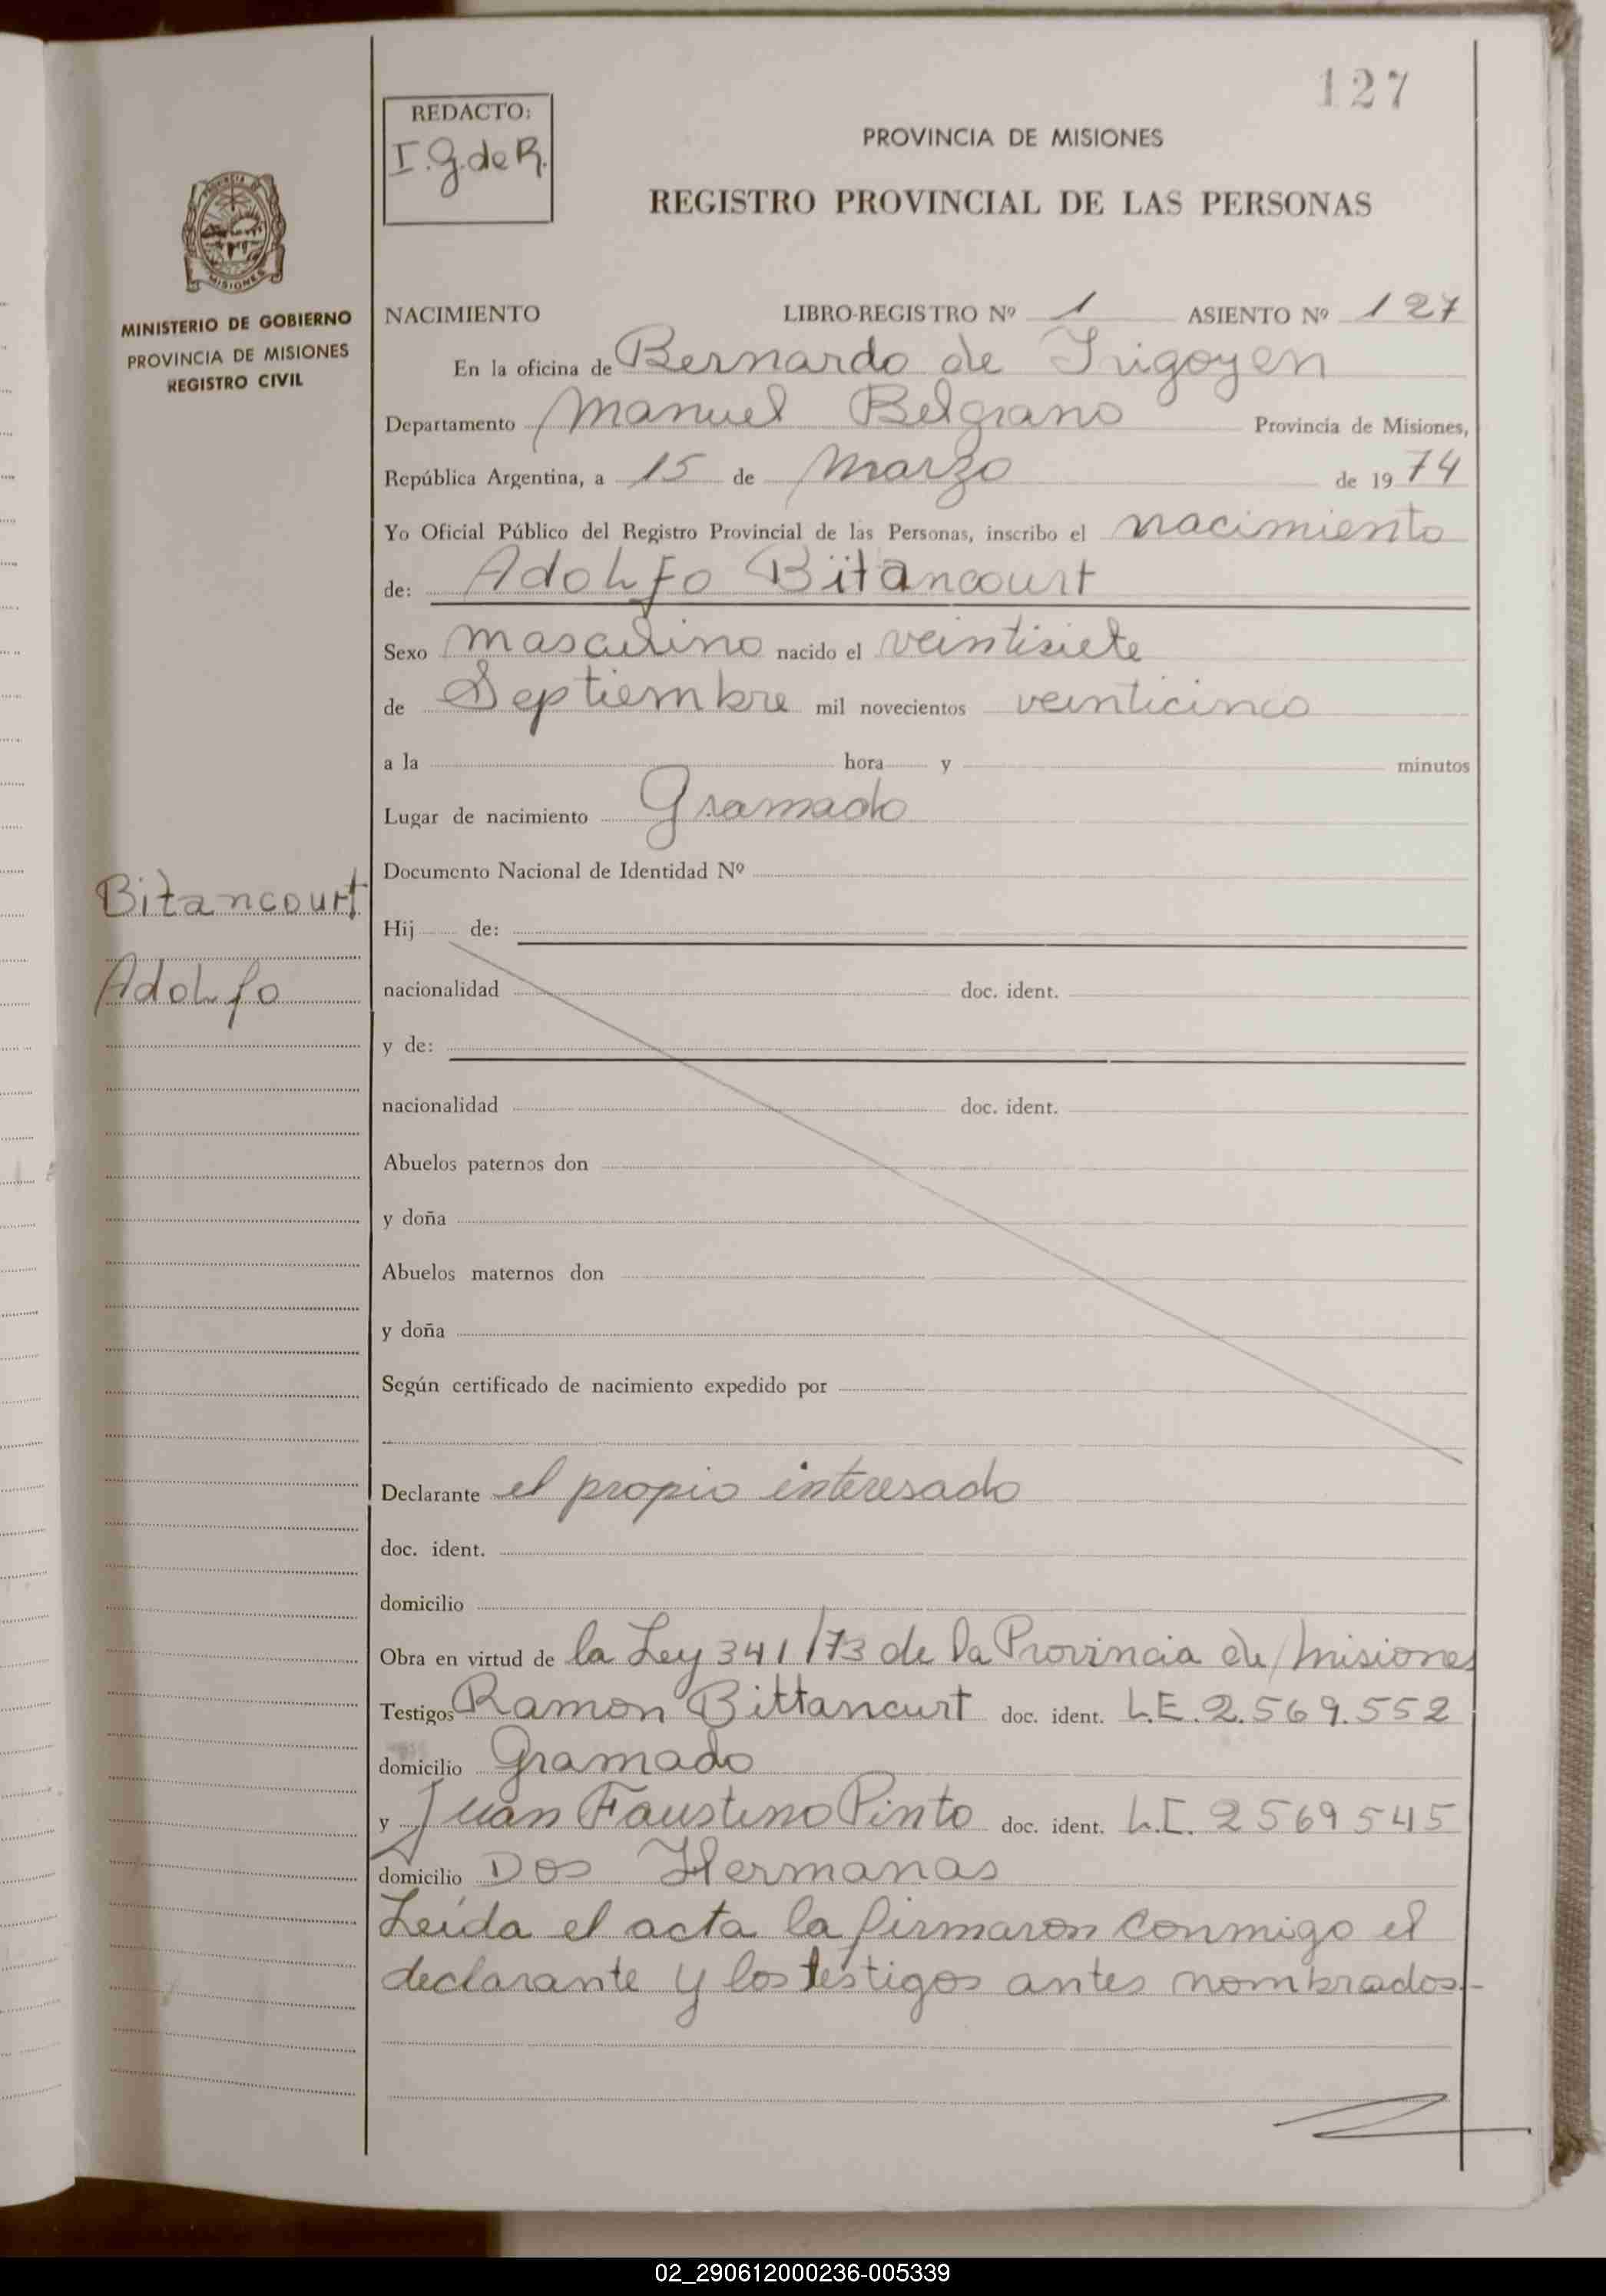 127
REDACTO:
I.G. de R.
PROVINCIA DE MISIONES
REGISTRO PROVINCIAL DE LAS PERSONAS
MINISTERIO DE GOBIERNO
PROVINCIA DE MISIONES
REGISTRO CIVIL
NACIMIENTO LIBRO-REGISTRO Nº 1 ASIENTO Nº 127
En la oficina de Bernardo de Irigoyen
Departamento Manuel Belgrano Provincia de Misiones,
República Argentina, a 15 de Marzo de 1974
Yo Oficial Público del Registro Provincial de las Personas, inscribo el nacimiento
de: Adolfo Bitancourt
Sexo masculino nacido el veintisiete
de Septiembre mil novecientos veinticinco
a la hora y minutos
Lugar de nacimiento Gramado
Documento Nacional de Identidad Nº
Bitancourt
Adolfo
Hij de:
nacionalidad doc. ident.
y de:
nacionalidad doc. ident.
Abuelos paternos don
y doña
Abuelos maternos don
y doña
Según certificado de nacimiento expedido por
Declarante el propio interesado
doc. ident.
domicilio
Obra en virtud de la Ley 341/73 de la Provincia de Misiones
Testigos Ramon Bittancurt doc. ident. L.E. 2.569.552
domicilio Gramado
y Juan Faustino Pinto doc. ident. L.E. 2569545
domicilio Dos Hermanas
Leída el acta la firmaron conmigo el
declarante y los testigos antes nombrados.-
02_290612000236-005339